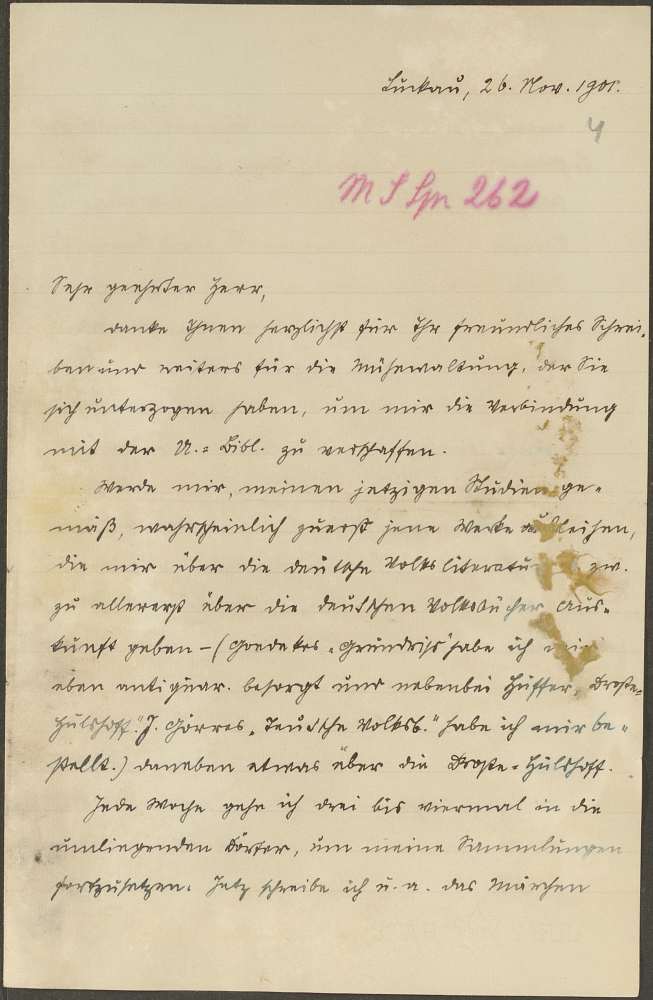 Luckau, 26. Nov. 1901.
4
M S Lpn 262
Sehr geehrter Herr,
danke Ihnen herzlichst für Ihr freundliches Schrei-
ben und weiters für die Mühewaltung, der Sie
sich unterzogen haben, um mir die Verbindung
mit der U.-Bibl. zu verschaffen.
Werde mir, meinen jetzigen Studien ge-
mäß, wahrscheinlich zuerst jene Werke ausleihen,
die mir über die deutsche Volksliteratur zw.
zu allererst über die deutschen Volksbücher Aus-
kunft geben – (Goedekes „Grundriss" habe ich mir
eben antiquar. besorgt und nebenbei Hüffer, Droste-
Hülshoff". J. Görres „Teutsche Volksb." habe ich mir be-
stellt.) daneben etwas über die Droste-Hülshoff.
Jede Woche gehe ich drei bis viermal in die
umliegenden Dörfer, um meine Sammlungen
fortzusetzen. Jetz schreibe ich u. a. das Märchen